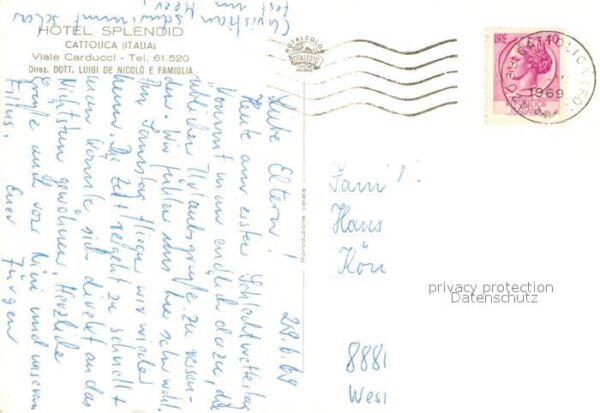 HOTEL SPLENDID
CATTOLICA (ITALIA)
Viale Carducci - Tel. 61.520
Direz. DOTT. LUIGI DE NICOLÒ E FAMIGLIA
ROTALCOLOR
ROTALFOTO
Riproduzione vietata
LIRE 40
CATTOLICA (FO
1969
29.6.69
Liebe Eltern!
Heute am ersten Schlechtwettertag
kommt man endlich dazu, die
üblichen Urlaubsgrüße zu versen-
den. Wir fühlen uns hier sehr wohl.
Am Samstag fliegen wir wieder
heim. Die Zeit vergeht zu schnell
man könnte sich direkt an das
Nichtstun gewöhnen. Herzliche
Grüße auch von und unserem
Filius. Euer Jürgen
Christian schwimmt schon
fest im Meer
Fam
Hans
8881
West
privacy protection
Datenschutz